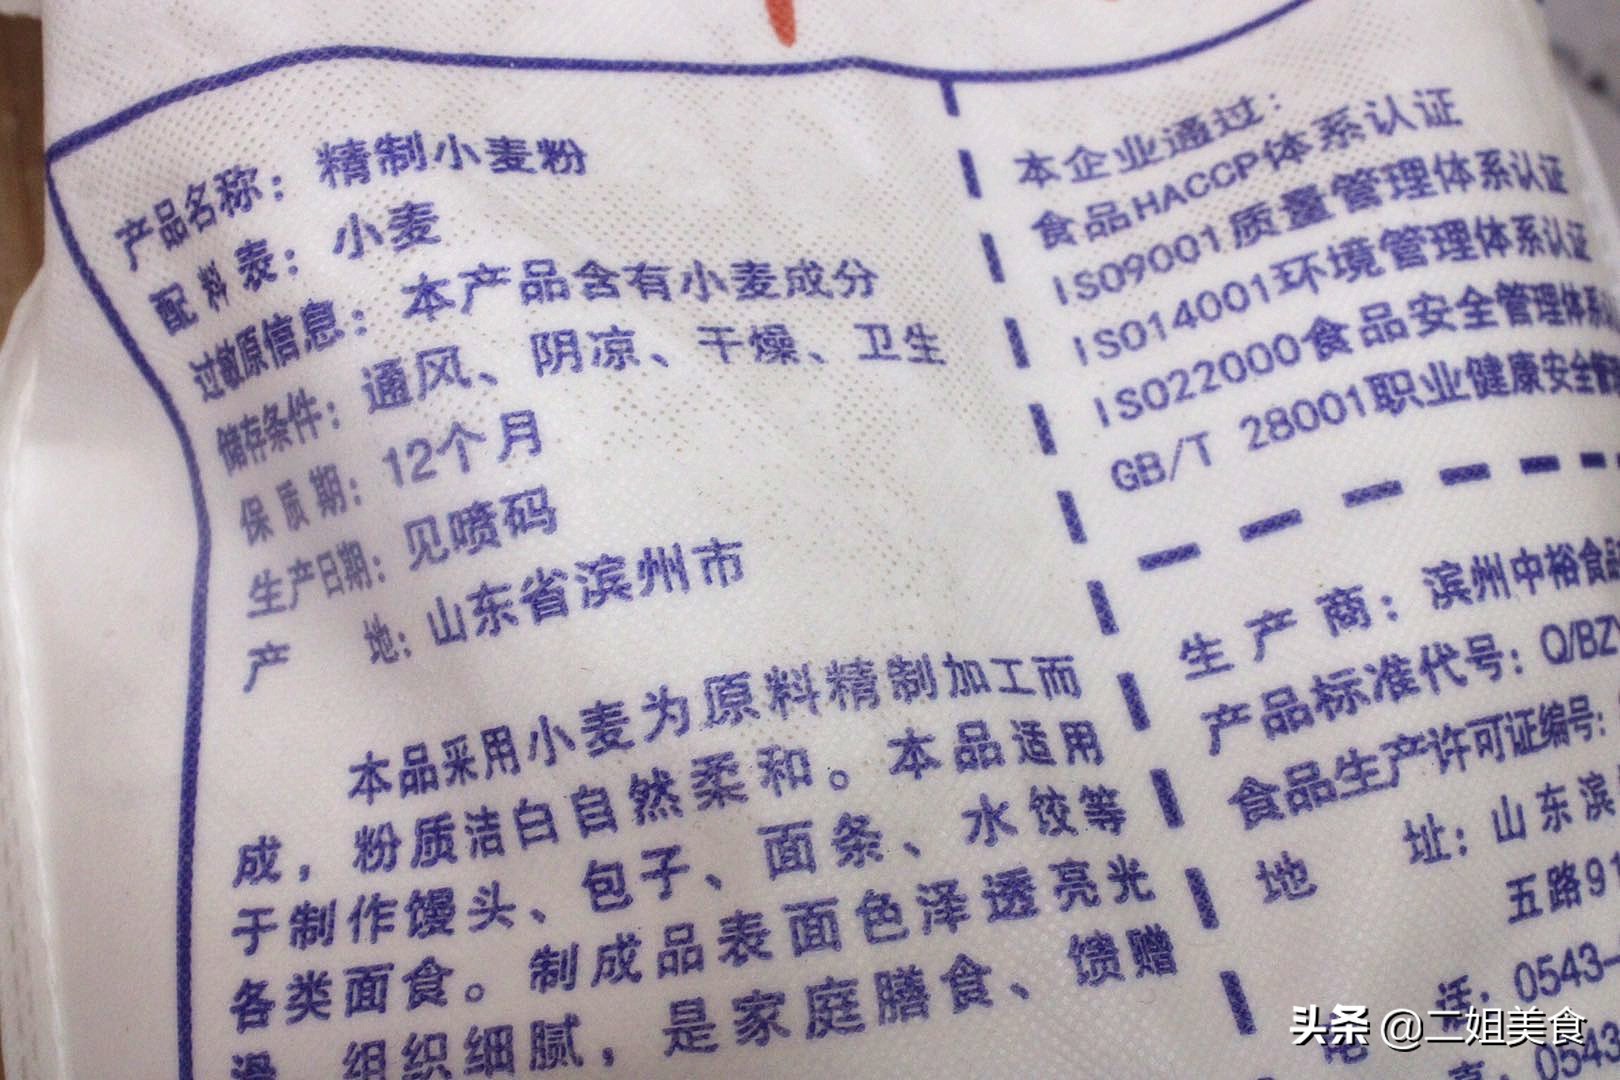 产品名称：精制小麦粉
配料表：小麦
过敏原信息：本产品含有小麦成分
储存条件：通风、阴凉、干燥、卫生
保质期：12个月
生产日期：见喷码
产地：山东省滨州市
本品采用小麦为原料精制加工而
成，粉质洁白自然柔和。本品适用
于制作馒头、包子、面条、水饺等
各类面食。制成品表面色泽透亮光
滑，组织细腻，是家庭膳食、馈赠
本企业通过：
食品HACCP体系认证
ISO9001质量管理体系认证
ISO14001环境管理体系认证
ISO22000食品安全管理体系
GB/T 28001职业健康安全管
生产商：滨州中裕食品
产品标准代号：Q/BZY
食品生产许可证编号：
地址：山东滨
五路91
话：0543-
真：0543
头条 @二姐美食